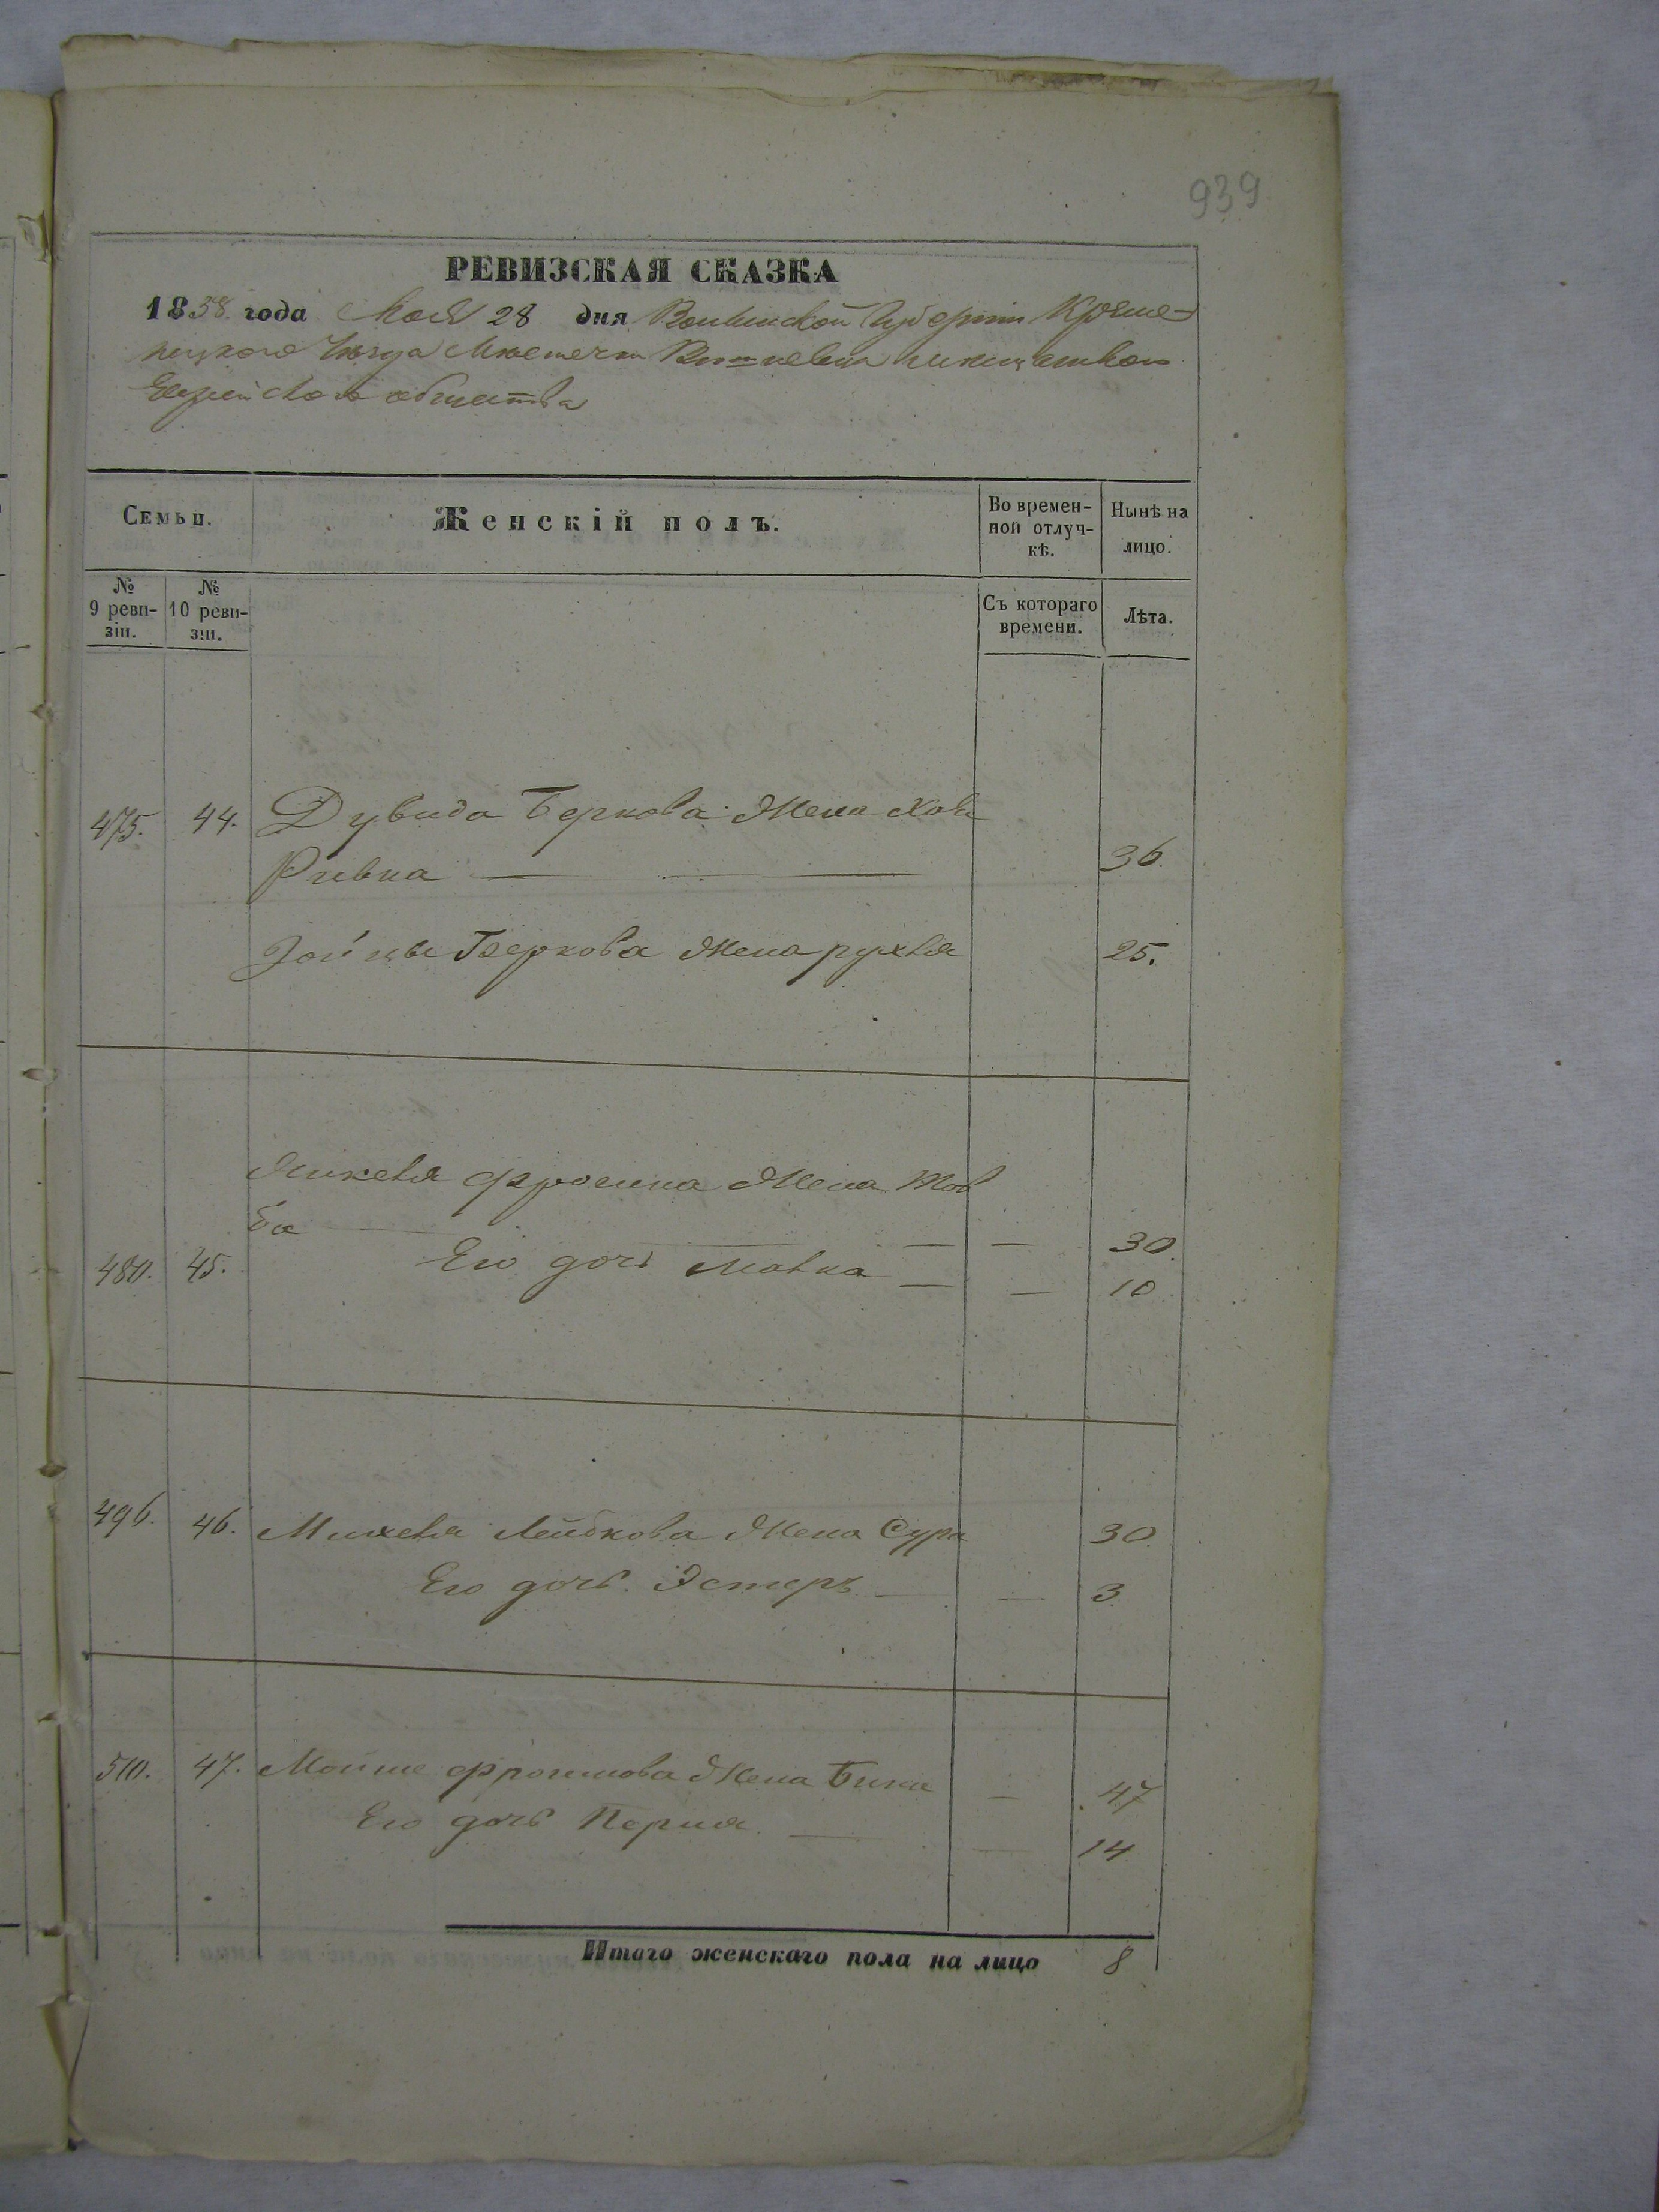 939
РЕВИЗСКАЯ СКАЗКА
1858. года Мая 28 дня Волынской Губерніи Креме-
нецкаго Уѣзда Мѣстечка Вишневца
Еврейскаго общества
Семьи.
Женскій полъ.
Во времен-
ной отлуч-
кѣ.
Нынѣ на
лицо.
№
9 реви-
зіи.
№
10 реви-
зіи.
Съ котораго
времени.
Лѣта.
475. 44. Дувида Беркова Жена Хая
Ривка 36.
Беркова Жена рухля 25.
Фроима Жена Тов
ба 30.
480. 45. Его дочь Малка 10
496. 46. Михеля Лейбкова Жена Сура 30.
Его дочь. Эстеръ 3
510. 47. Мойше Фроимова Жена 47
Его дочь Перля 14
Итого женскаго пола на лицо 8